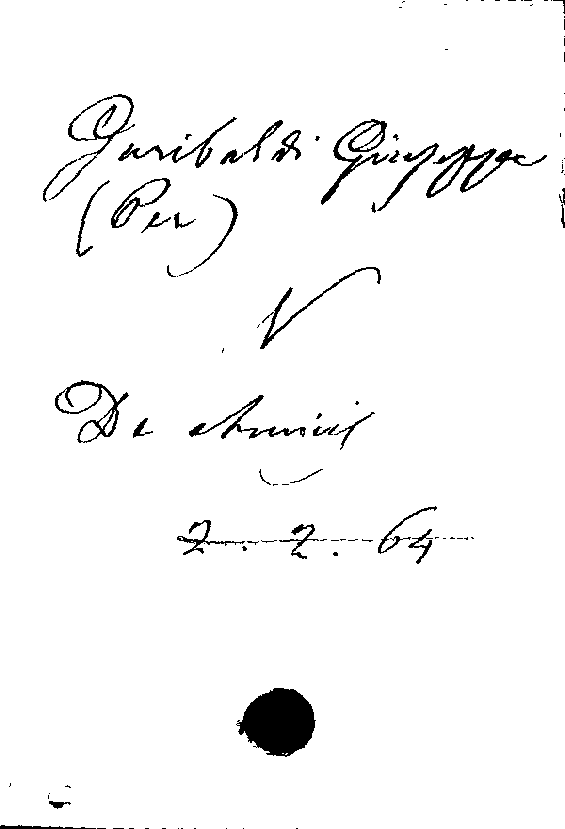 Garibaldi Giuseppe
(Per)
V
De
2. 2. 64